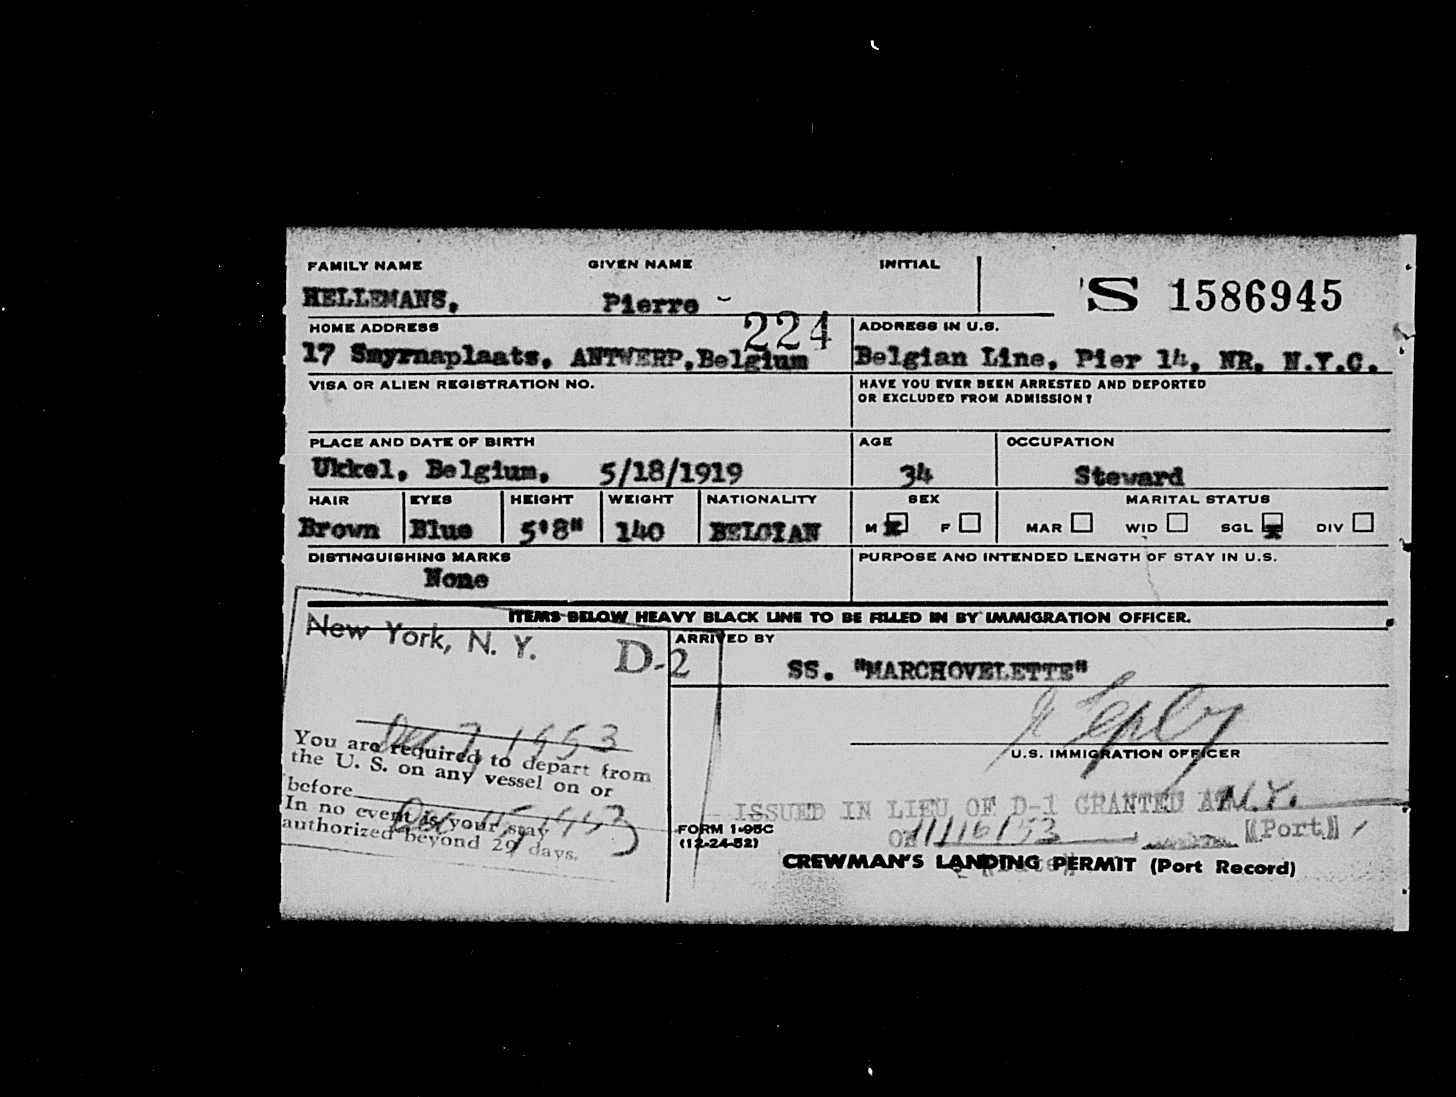 FAMILY NAME GIVEN NAME INITIAL
HELLEMANS, Pierre S 1586945
224
HOME ADDRESS ADDRESS IN U.S.
17 Smyrnaplaats, ANTWERP, Belgium Belgian Line, Pier 14, NR, N.Y.C.
VISA OR ALIEN REGISTRATION NO. HAVE YOU EVER BEEN ARRESTED AND DEPORTED
OR EXCLUDED FROM ADMISSION?
PLACE AND DATE OF BIRTH AGE OCCUPATION
Ukkel, Belgium, 5/18/1919 34 Steward
HAIR EYES HEIGHT WEIGHT NATIONALITY SEX MARITAL STATUS
Brown Blue 5'8" 140 BELGIAN M x F MAR WID SGL x DIV
DISTINGUISHING MARKS PURPOSE AND INTENDED LENGTH OF STAY IN U.S.
None
ITEMS BELOW HEAVY BLACK LINE TO BE FILLED IN BY IMMIGRATION OFFICER.
New York, N. Y. D-2
ARRIVED BY
SS. "MARCHOVELETTE"
Dec 7 1953
U.S. IMMIGRATION OFFICER
You are required to depart from
the U. S. on any vessel on or
before Dec 15, 1953
In no event is your stay
authorized beyond 29 days.
ISSUED IN LIEU OF D-1 GRANTED AT N.Y.
ON 11/16/53 (Port)
FORM I-95C
(12-24-52)
CREWMAN'S LANDING PERMIT (Port Record)